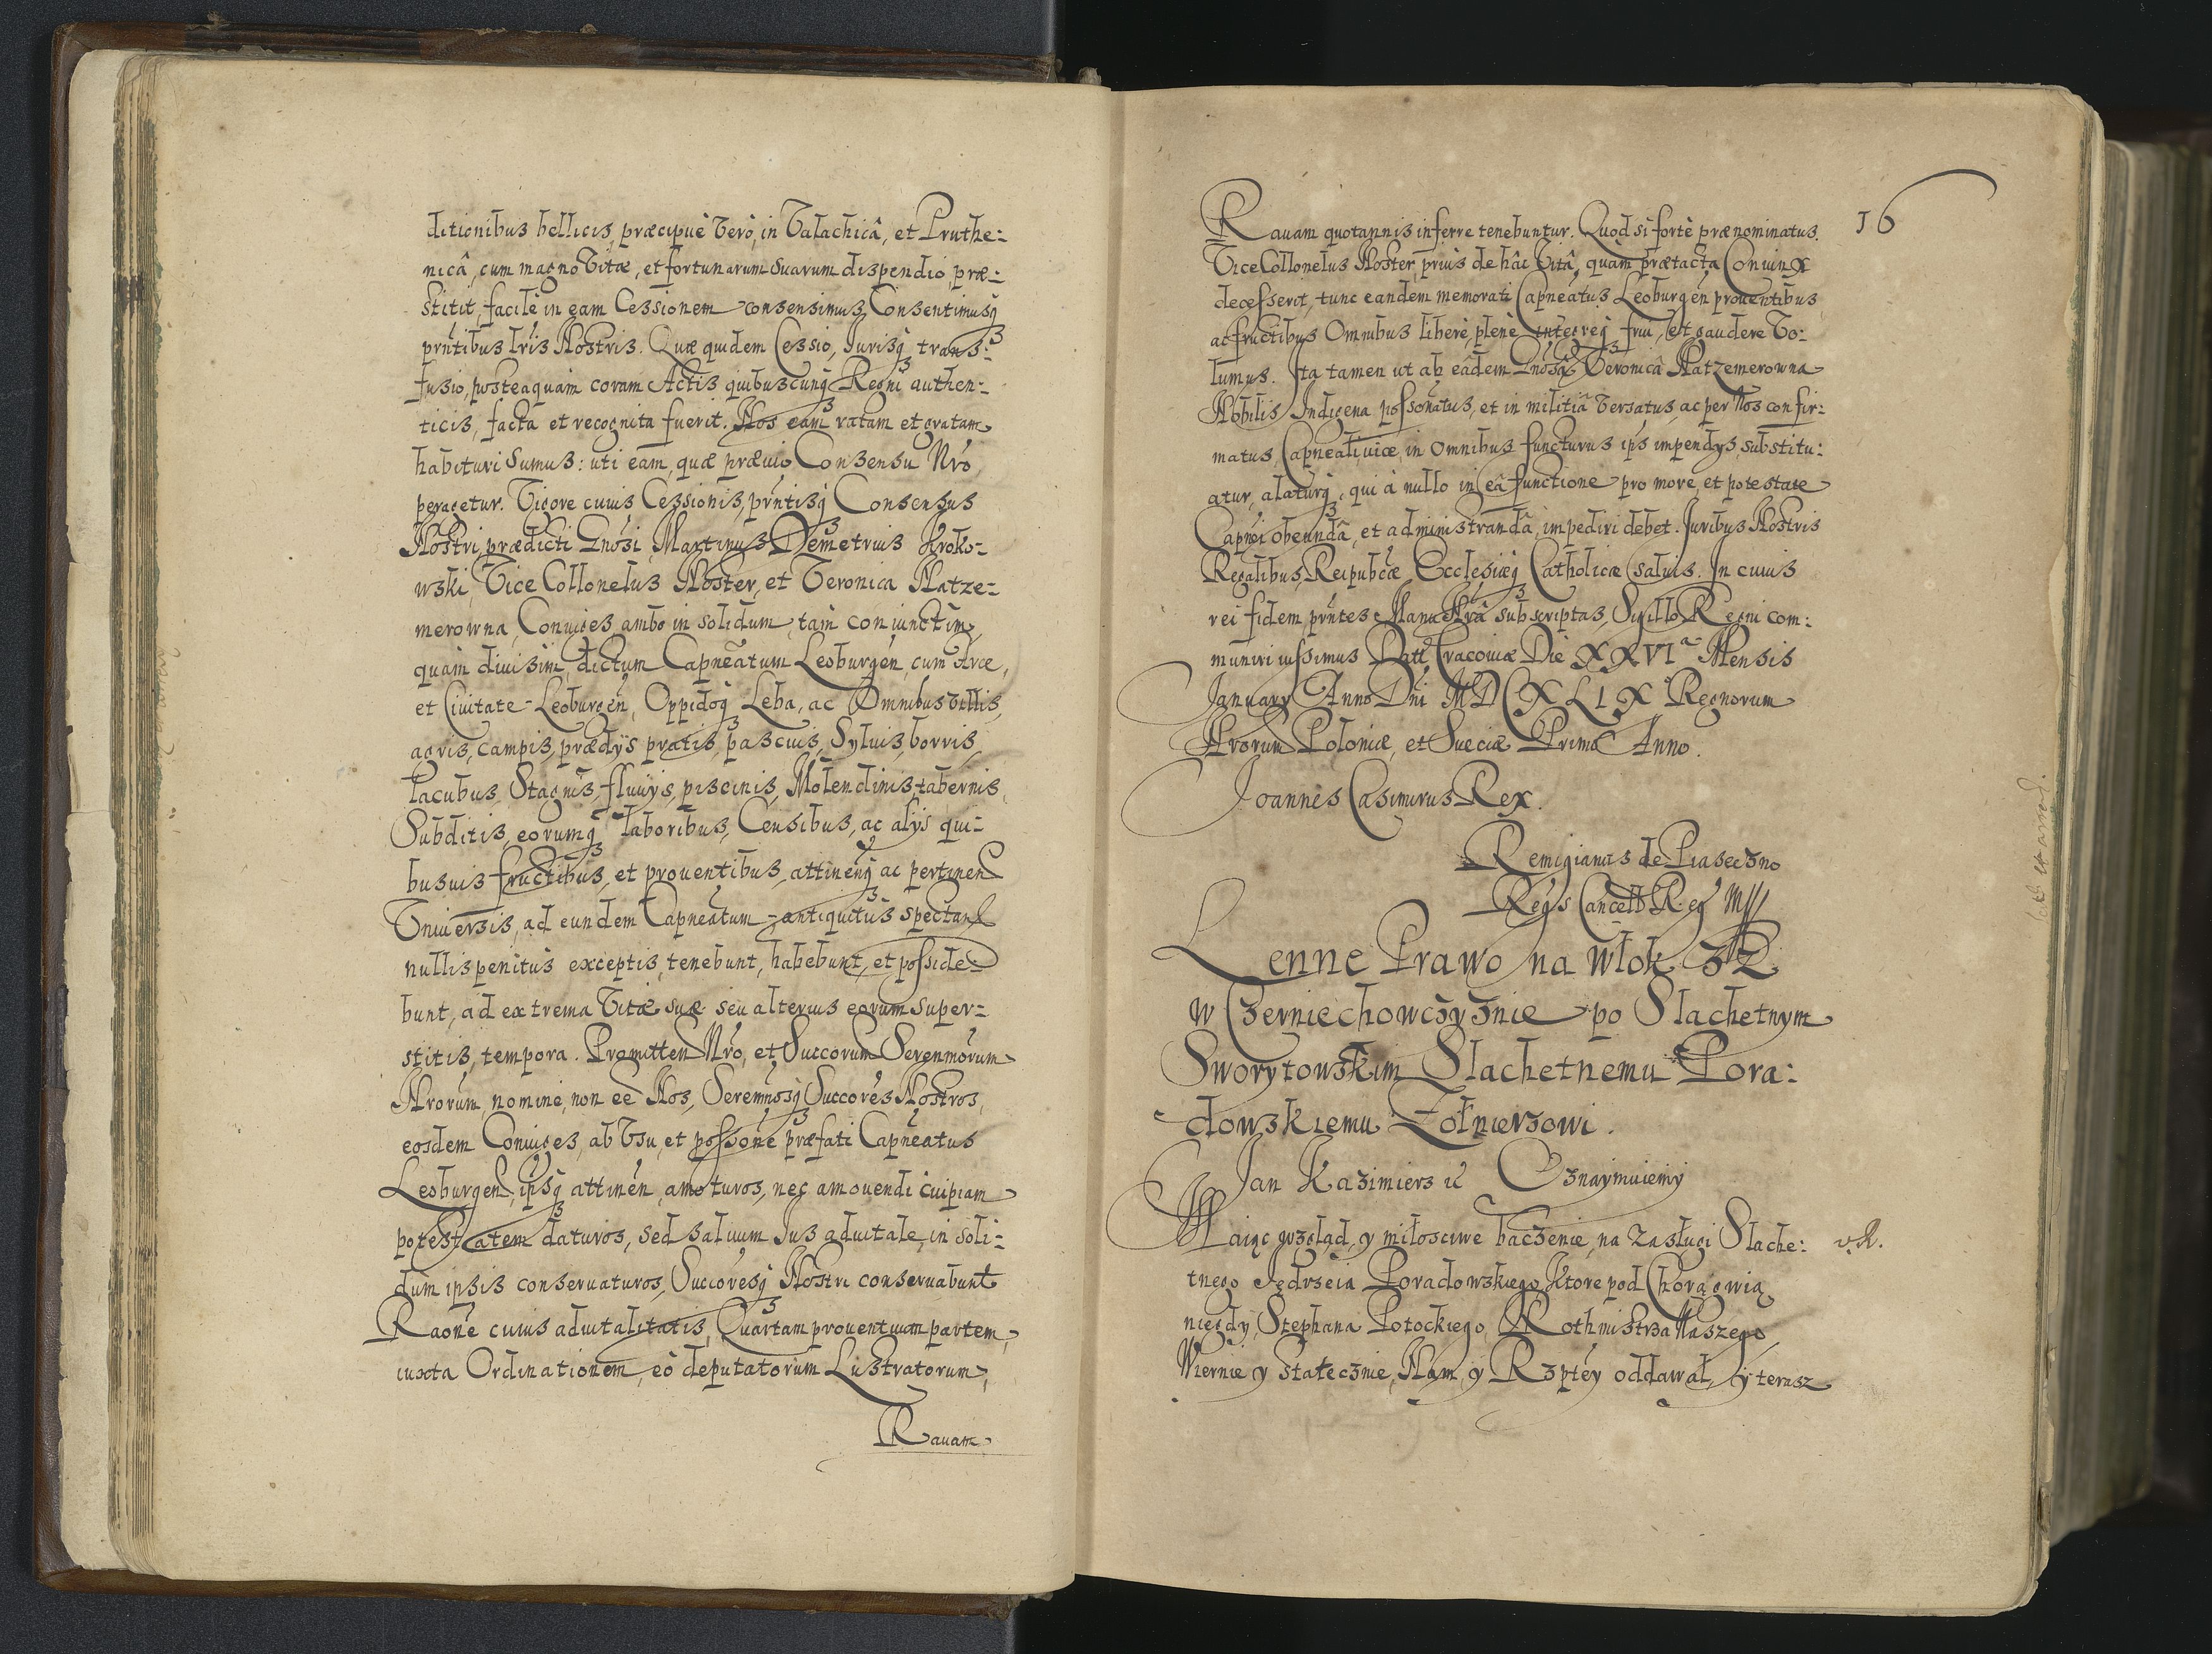 ditionibus bellicis, præcipuè verò, in Valachicâ, et Pruthe=
nicâ, cum magno Vitæ, et fortunarum suarum dispendio, præ=
stitit, facilè in eam Cessionem consensimus, Consentimusq
prntibus lris Nostris. Quæ quidem Cessio, Jurisq trans=
fusio, posteaquam coram Actis quibuscunq Regni authen=
ticis, facta et recognita fuerit. Nos eam ratam et gratam
habituri sumus: uti eam, quæ prævio Consensu Nro
peragetur. Vigore cuius Cessionis, prntisq Consensus
Nostri, prædicti Gnosi Martinus Demetrius Kroko=
wski, Vice Collonelus Noster, et Veronica Natze=
merowna, Coniuges, ambo in solidum, tam coniunctim,
quàm diuisim, dictum Capneatum Leoburgen, cum Arce,
et Ciuitate Leoburgen, Oppidoq Leba, ac Omnibus villis,
agris, campis, prædÿs pratis, pascuis, Syluis, borris,
lacubus, Stagnis, fluuÿs, piscinis, Molendinis, tabernis,
Subditis, eorumq laboribus, Censibus, ac alÿs qui=
busuis fructibus, et prouentibus, attinenq ac pertinen
Vniuersis, ad eundem Capneatum antiquitus spectan
nullis penitus exceptis, tenebunt, habebunt, et posside=
bunt, ad extrema Vitæ suæ seu alterius eorum super=
stitis, tempora. Promitten Nro, et Succorum Serenmorum
Nrorum, nomine, non ee Nos, Seremnosq Succores Nostros,
eosdem Coniuges, ab Vsu, et possone præfati Capneatus
Leoburgen, ipsq attinen, amoturos, neq amouendi cuipiam
potestatem daturos, sed saluum Jus aduitale, in soli=
dum ipsis conseruaturos, Succoresq Nostri conseruabunt
Raone cuius aduitalitatis, Quartam prouentuum partem,
iuxta Ordinationem, eò deputatorum Lustratorum,
Rauam
16
Rauam quotannis inferre tenebuntur. Quod si fortè prænominatus
Vice Collonelus Noster, prius de hâc Vitâ, quàm prætacta Coniunx
decesserit, tunc eandem memorati Capneatus Leoburgen prouentibus,
ac fructibus Omnibus liberè, plenè integreq frui, et gaudere Vo=
lumus. Ita tamen ut ab eâdem Gnosa Veronicâ Natzemerowna
Nobilis Indigena possonatus, et in militiâ versatus, ac per Nos confir=
matus, Capnealiuice, in Omnibus functurus ipˢ impendÿs, substitu=
atur, alaturq, qui à nullo in eâ functione pro more, et potestate
Capnei obeundâ, et administrandâ, impediri debet. Juribus Nostris
Regalibus, Reipubcæ, Ecclesiæq Catholicæ saluis. In cuius
rei fidem prntes Manu Nrâ subscriptas, Sigillo Regni com=
muniri iussimus Datt Cracouiæ Die XXVIᵃ Mensis
January Anno Dni MDCXLIX Regnorum
Nrorum Poloniæ, et Sueciæ Primo Anno.
Joannes Casimirus Rex.
Remigianus de Piaseczno
Regˢ Cancell Reg
Lenne Prawo na Wlok 32
w Czerniechowczyznie po Slachetnym
Sworytowskim Slachetnemu Pora=
dowskiemu Zołnierzowi.
Jan Kazimierz Oznaymuiemy
Maiąc wzgląd, y miłosciwe baczenie, na Zasługi Slache=
tnego Jędrzeia Poradowskiego, Ktore pod Chorągwią
niegdy Stephana Potockiego, Rothmistrza Naszego,
Wiernie y Statecznie, Nam, y Rzptey oddawał, y terasz